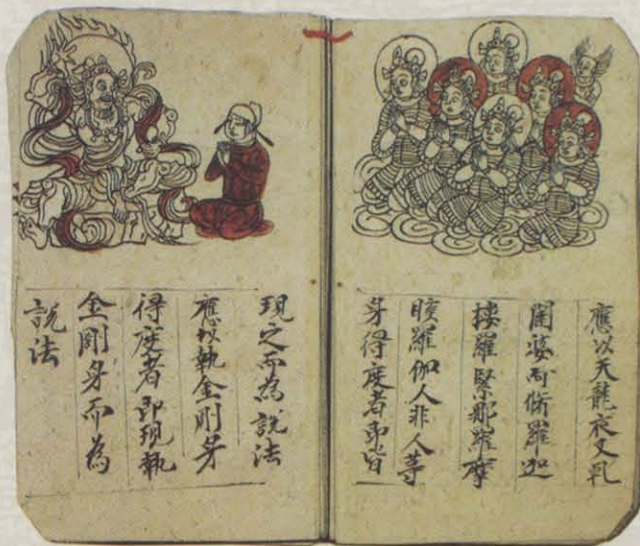 應以天龍夜叉乹
闥婆阿脩羅迦
樓羅緊那羅摩
睺羅伽人非人等
身得度者即皆
現之而為說法
應以執金剛身
得度者即現執
金剛身而為
說法